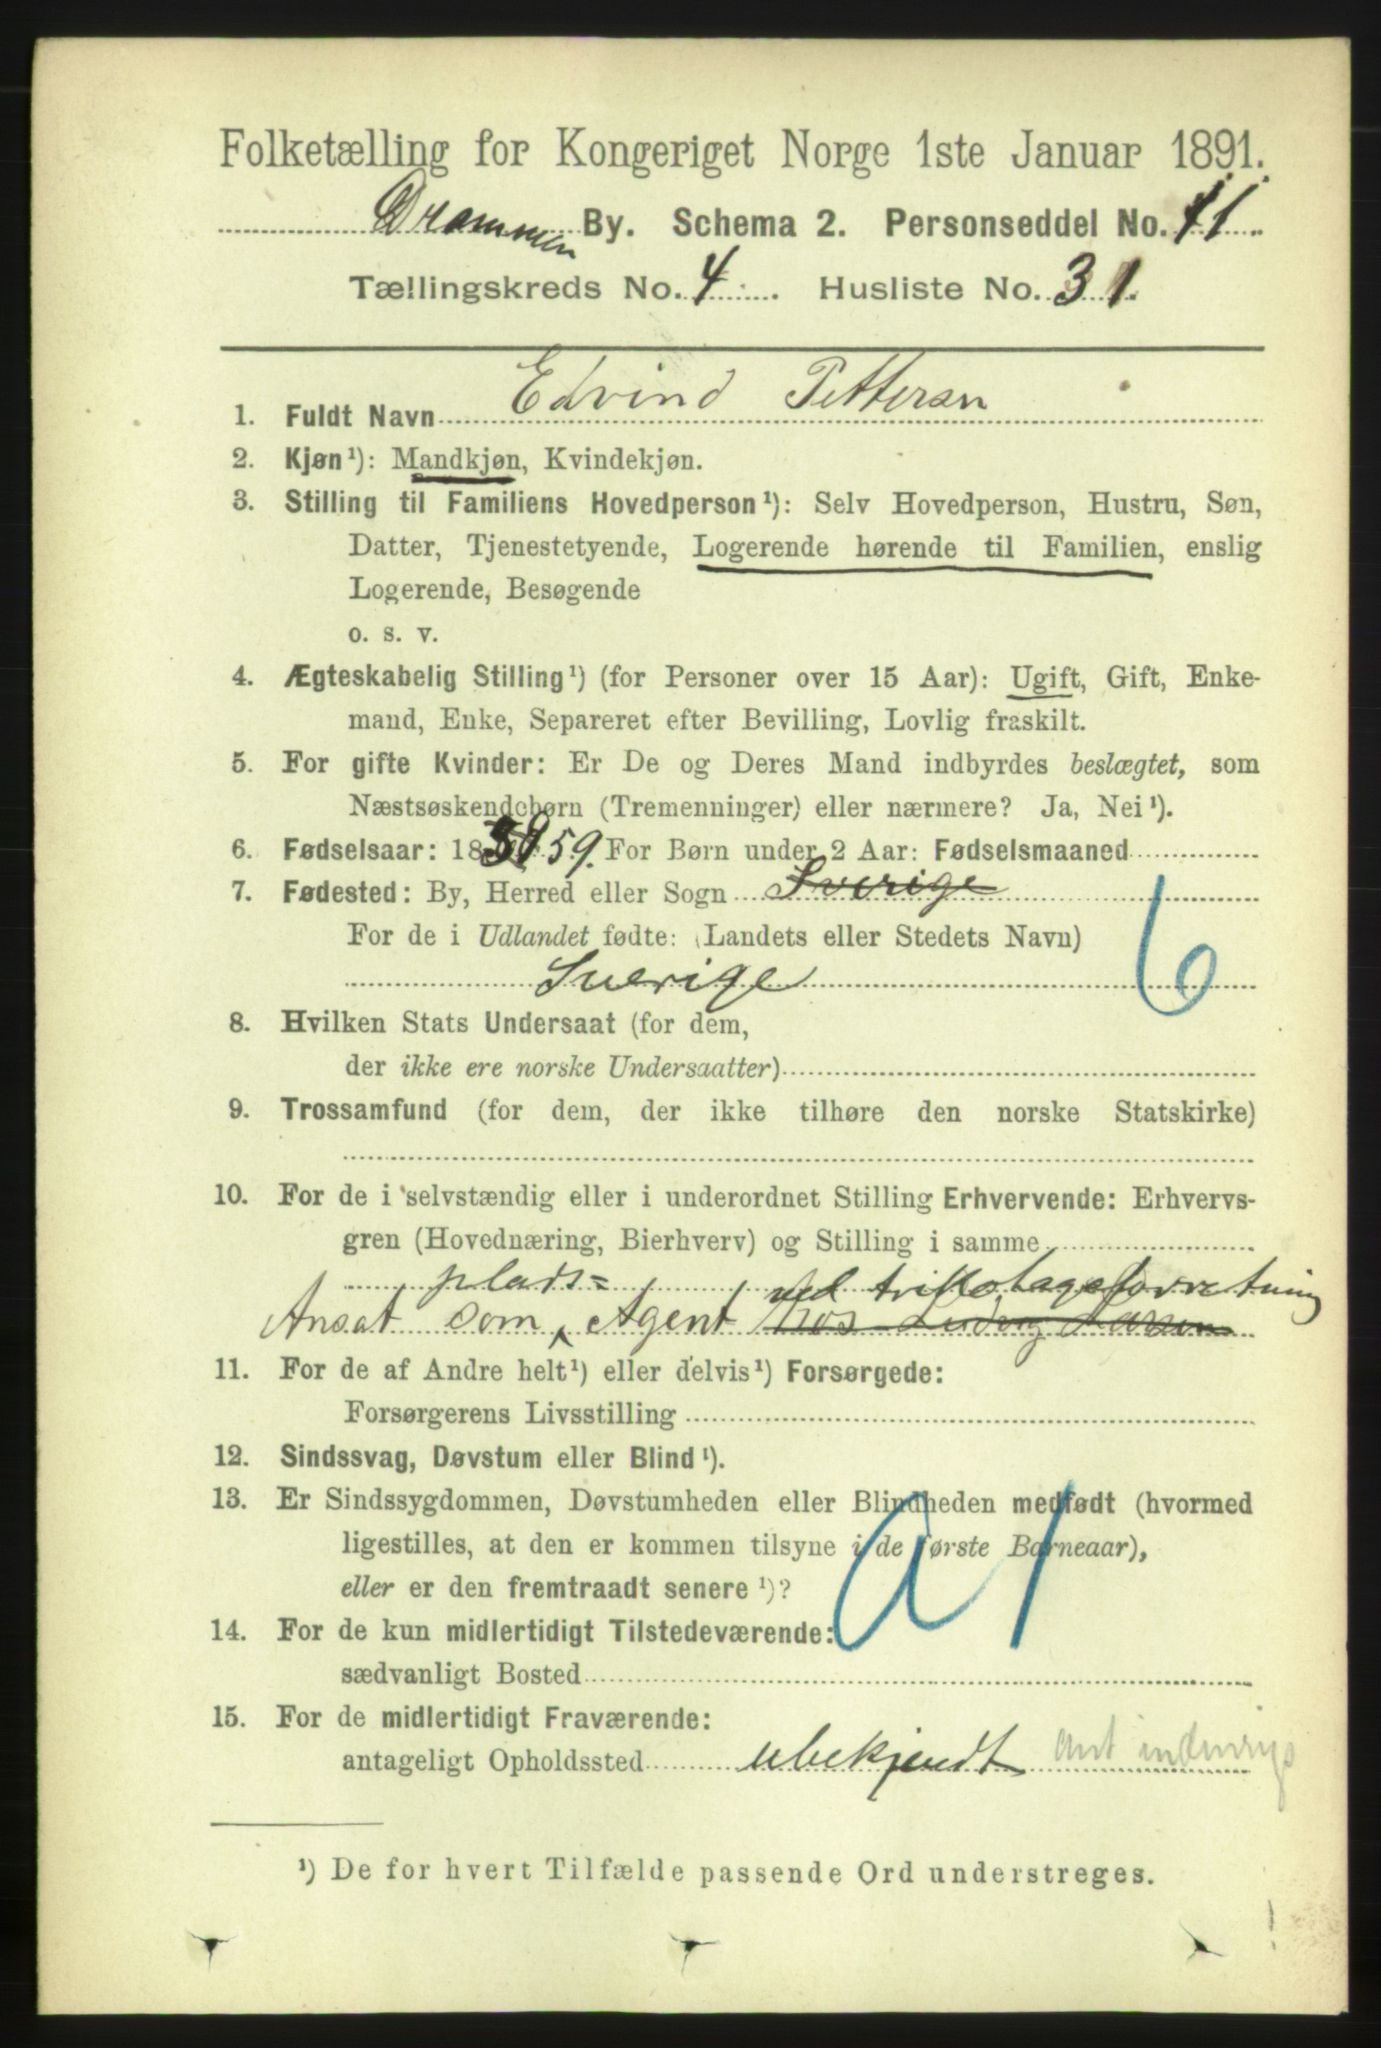 Folketælling for Kongeriget Norge 1ste Januar 1891.
Drammen By. Schema 2. Personseddel No. 11
Tællingskreds No. 4. Husliste No. 31.
1. Fuldt Navn Edvind Pettersen
2. Kjøn¹): Mandkjøn, Kvindekjøn.
3. Stilling til Familiens Hovedperson¹): Selv Hovedperson, Hustru, Søn,
Datter, Tjenestetyende, Logerende hørende til Familien, enslig
Logerende, Besøgende
o. s. v.
4. Ægteskabelig Stilling¹) (for Personer over 15 Aar): Ugift, Gift, Enke-
mand, Enke, Separeret efter Bevilling, Lovlig fraskilt.
5. For gifte Kvinder: Er De og Deres Mand indbyrdes beslægtet, som
Næstsøskendebørn (Tremenninger) eller nærmere? Ja, Nei¹).
6. Fødselsaar: 18 59. For Børn under 2 Aar: Fødselsmaaned
7. Fødested: By, Herred eller Sogn Sverige
For de i Udlandet fødte: (Landets eller Stedets Navn)
Sverige
6
8. Hvilken Stats Undersaat (for dem,
der ikke ere norske Undersaatter)
9. Trossamfund (for dem, der ikke tilhøre den norske Statskirke)
10. For de i selvstændig eller i underordnet Stilling Erhvervende: Erhvervs-
gren (Hovednæring, Bierhverv) og Stilling i samme
plads= ved trikotageforretning
Ansat som Agent hos Ludvig Larsen
11. For de af Andre helt¹) eller delvis¹) Forsørgede:
Forsørgerens Livsstilling
12. Sindssvag, Døvstum eller Blind¹).
13. Er Sindssygdommen, Døvstumheden eller Blindheden medfødt (hvormed
ligestilles, at den er kommen tilsyne i de første Barneaar),
eller er den fremtraadt senere¹)?
a1
14. For de kun midlertidigt Tilstedeværende:
sædvanligt Bosted
15. For de midlertidigt Fraværende:
antageligt Opholdssted ubekjendt ant indenrigs
¹) De for hvert Tilfælde passende Ord understreges.